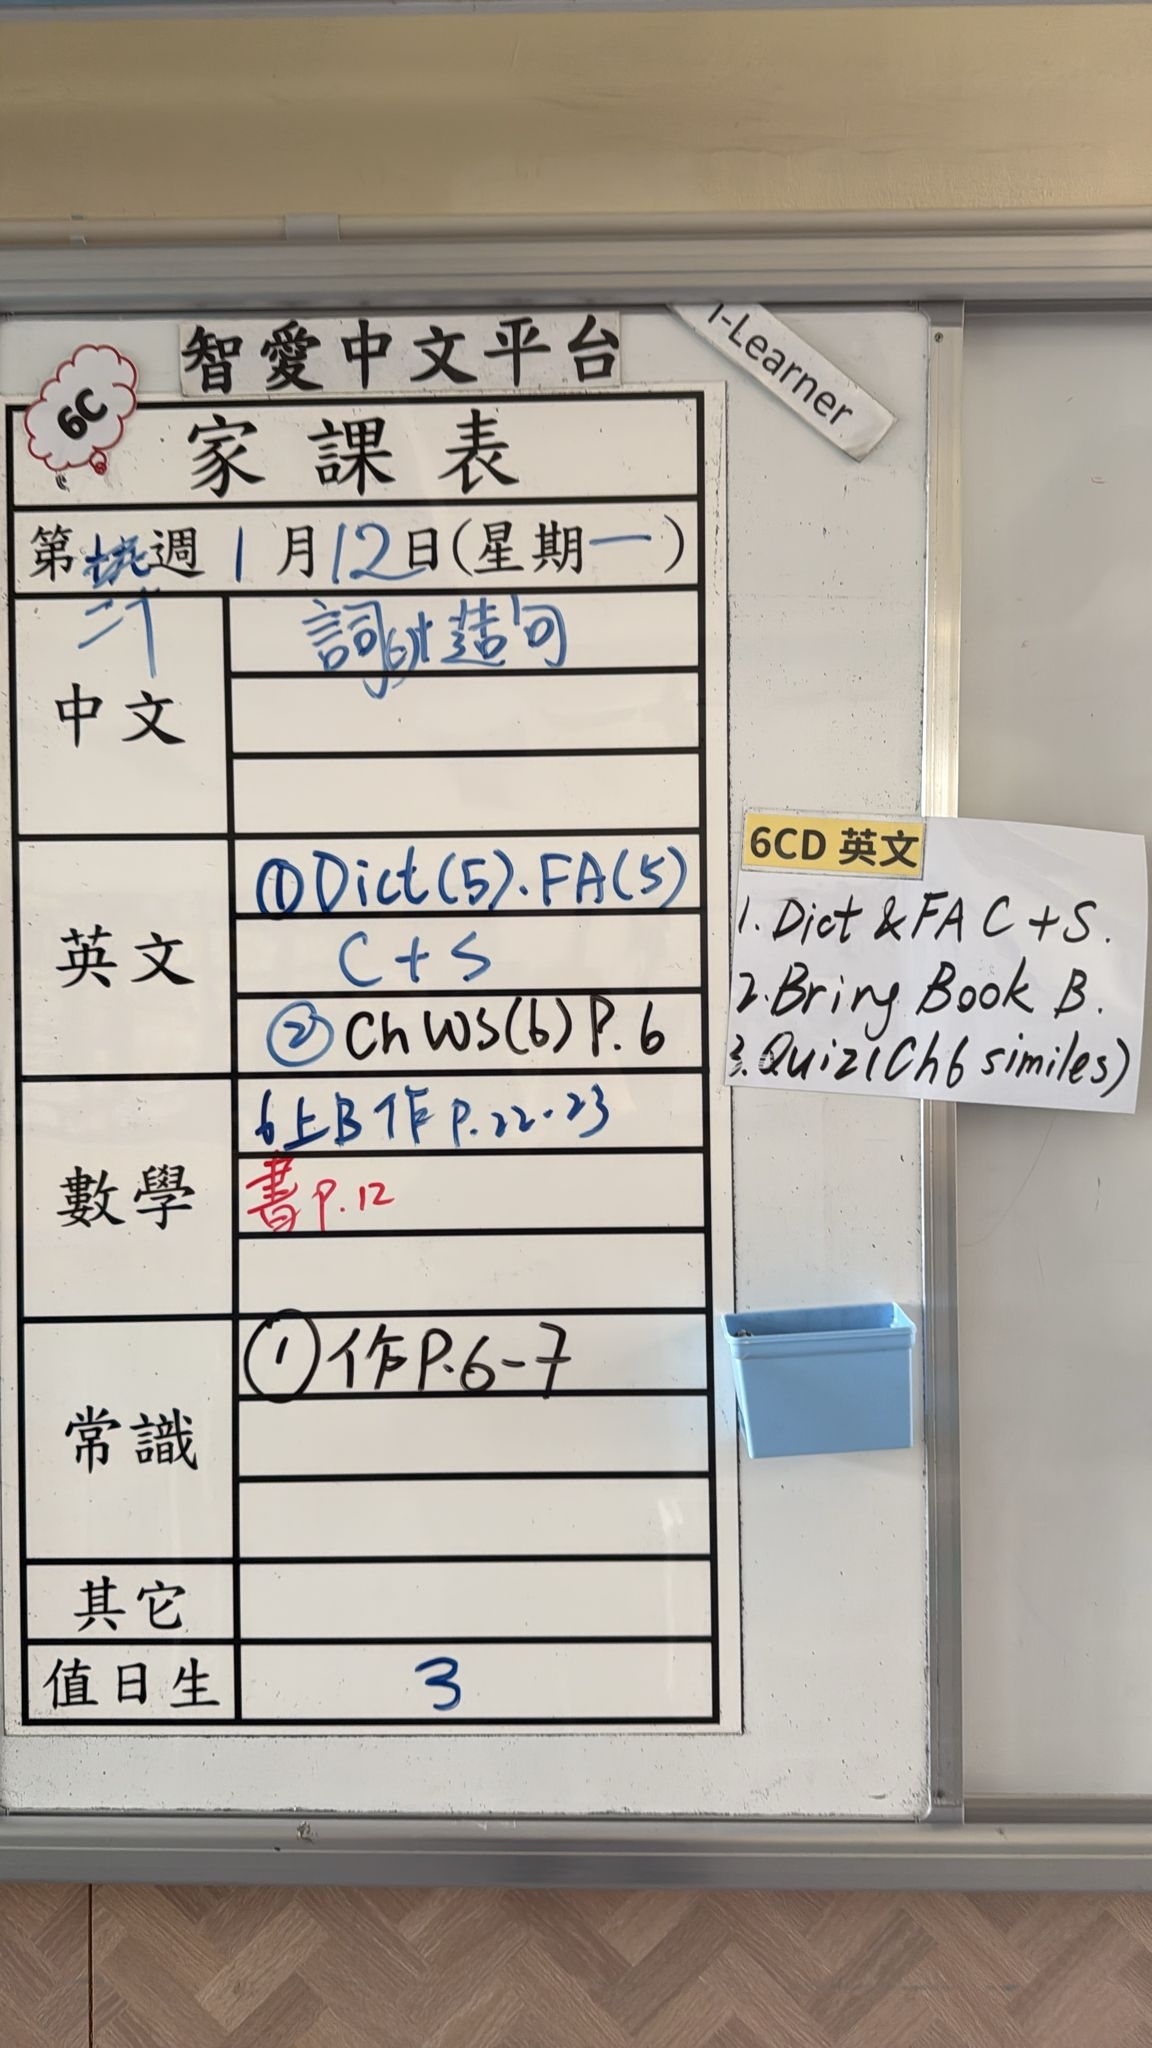 智愛中文平台
i-Learner
6C
家課表
第 週 1月12日(星期一)
中文
詞(6)+造句
英文
①Dict(5).FA(5)
C+S
②Ch WS(6) P.6
6CD 英文
1. Dict & FA C+S.
2. Bring Book B.
3. Quiz1(Ch6 similes)
數學
6上B作 P.22-23
書 P.12
常識
①作P.6-7
其它
值日生
3